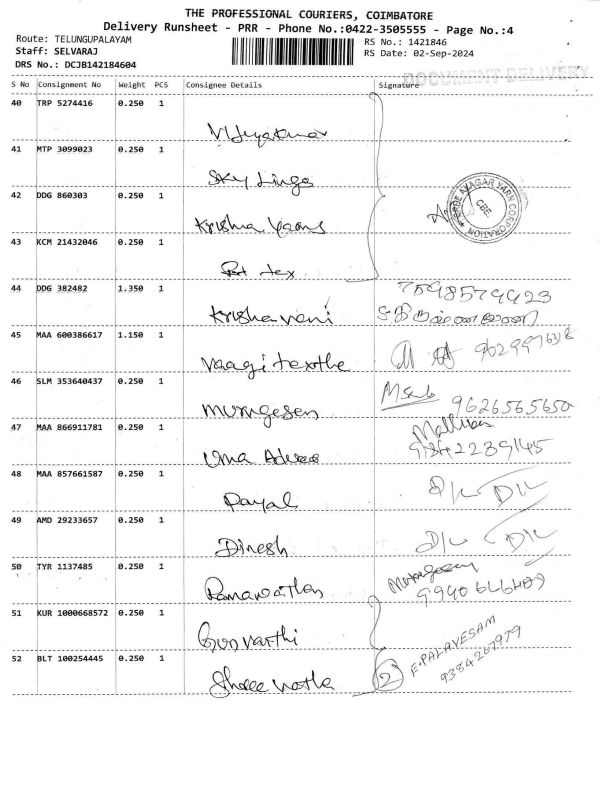 THE PROFESSIONAL COURIERS, COIMBATORE
Delivery Runsheet - PRR - Phone No.:0422-3505555 - Page No.:4
Route: TELUNGUPALAYAM
RS No.: 1421846
Staff: SELVARAJ
RS Date: 02-Sep-2024
DRS No.: DCJB142184604
DOCUMENT DELIVERY
S No Consignment No Weight PCS Consignee Details Signature
40 TRP 5274416 0.250 1 Vijayakumar
41 MTP 3099023 0.250 1 Sky Lings
42 DDG 860303 0.250 1 Krishna Yarns
NAGAR YARN CORPORATION
CBE
43 KCM 21432046 0.250 1 tex
44 DDG 382482 1.350 1 Krishaveni 7598579923
45 MAA 600386617 1.150 1
46 SLM 353640437 0.250 1 Murugesen 9626565650
47 MAA 866911781 0.250 1 Uma
48 MAA 857661587 0.250 1 Payal D/L D/L
49 AMD 29233657 0.250 1 Dinesh D/L D/L
50 TYR 1137485 0.250 1 Murugesan
51 KUR 1000668572 0.250 1
52 BLT 100254445 0.250 1 Shree 2 E.PALAYESAM
9384267979